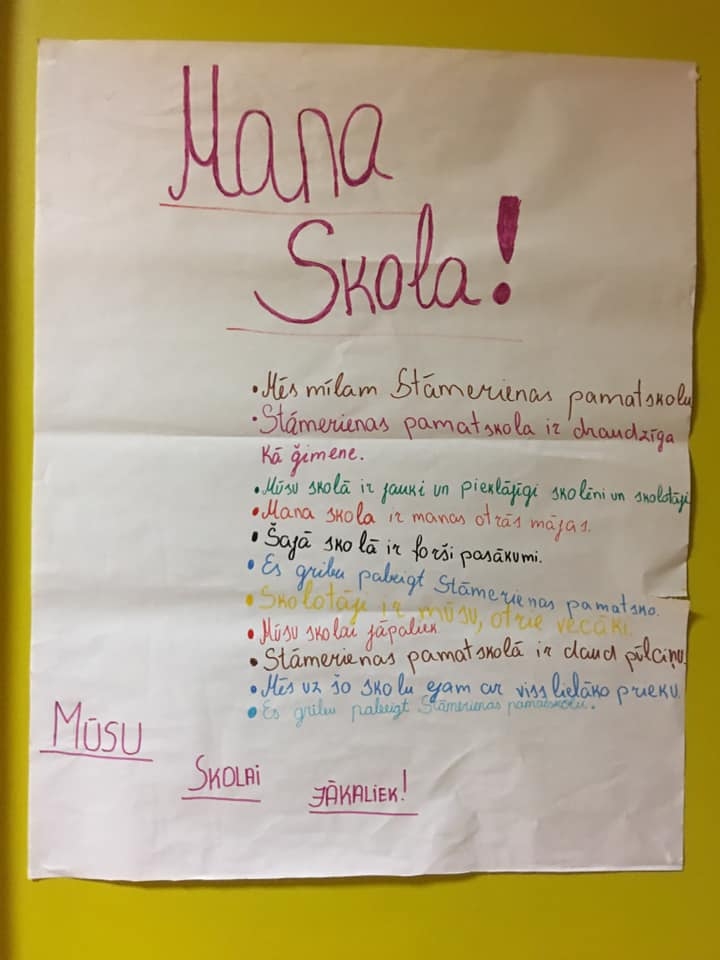 Mana
Skola!
• Mēs mīlam Stāmerienas pamatskolu
• Stāmerienas pamatskola ir draudzīga
kā ģimene.
• Mūsu skolā ir jauki un pieklājīgi skolēni un skolotāji
• Mana skola ir manas otrās mājas.
• Šajā skolā ir forši pasākumi.
• Es gribu pabeigt Stāmerienas pamatsko.
• Skolotāji ir mūsu, otrie vecāki.
• Mūsu skolai jāpaliek
• Stāmerienas pamatskolā ir daud pūlciņu.
• Mēs uz šo skolu ejam ar viss lielāko prieku.
• Es gribu pabeigt Stāmerienas pamatskolu.
MŪSU
SKOLAI
JĀKALIEK!